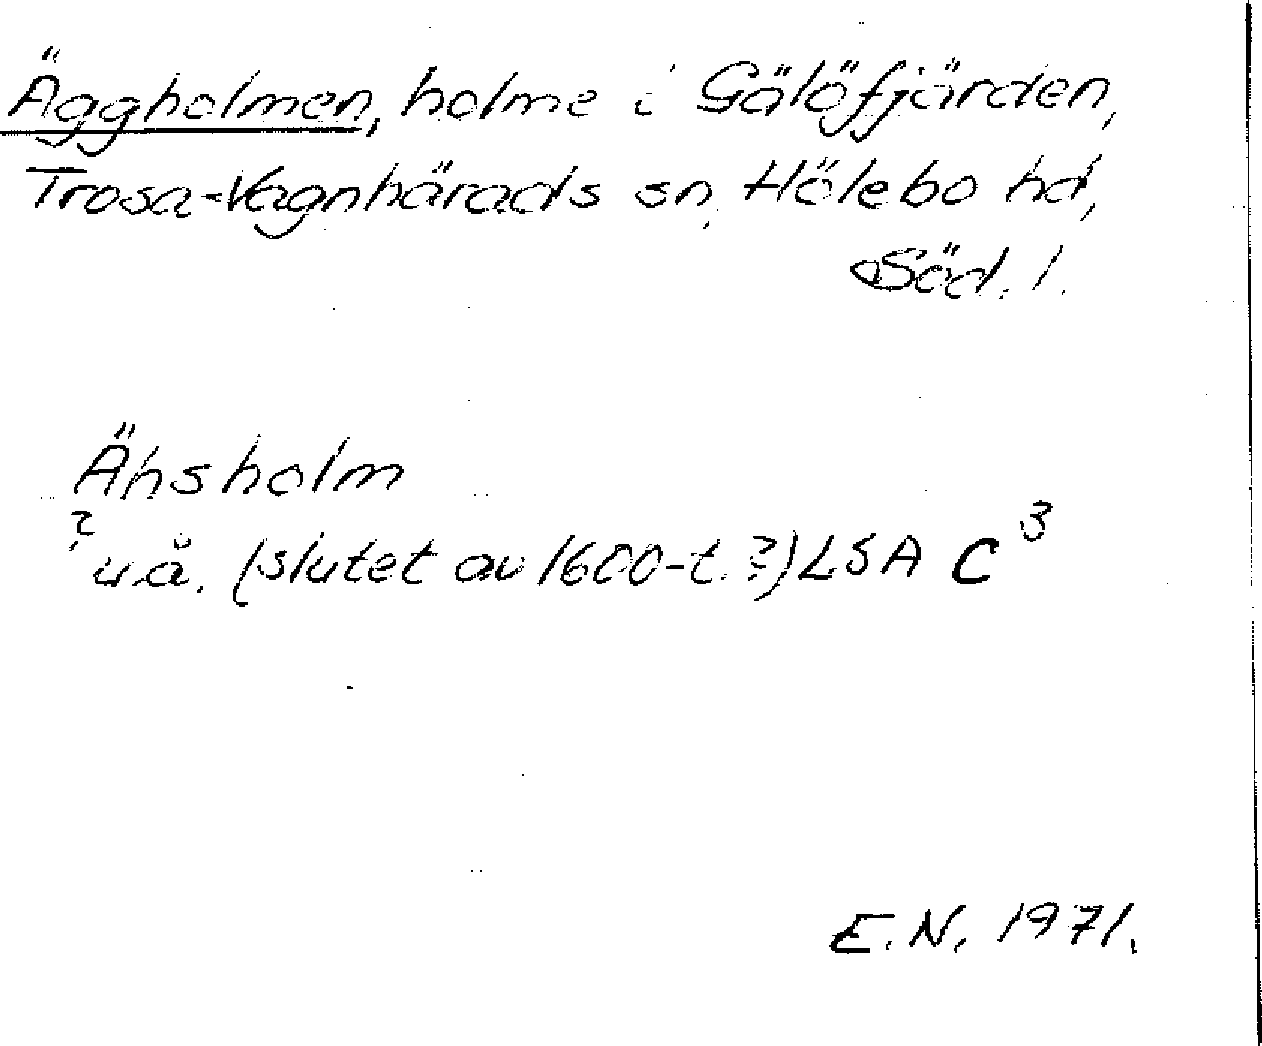 Äggholmen, holme i Gälöfjärden,
Trosa-Vagnhärads sn, Hölebo hd,
Söd. l.
Ähsholm
?
u.å. (slutet av 1600-t. ?) LSA C³
E.N. 1971.